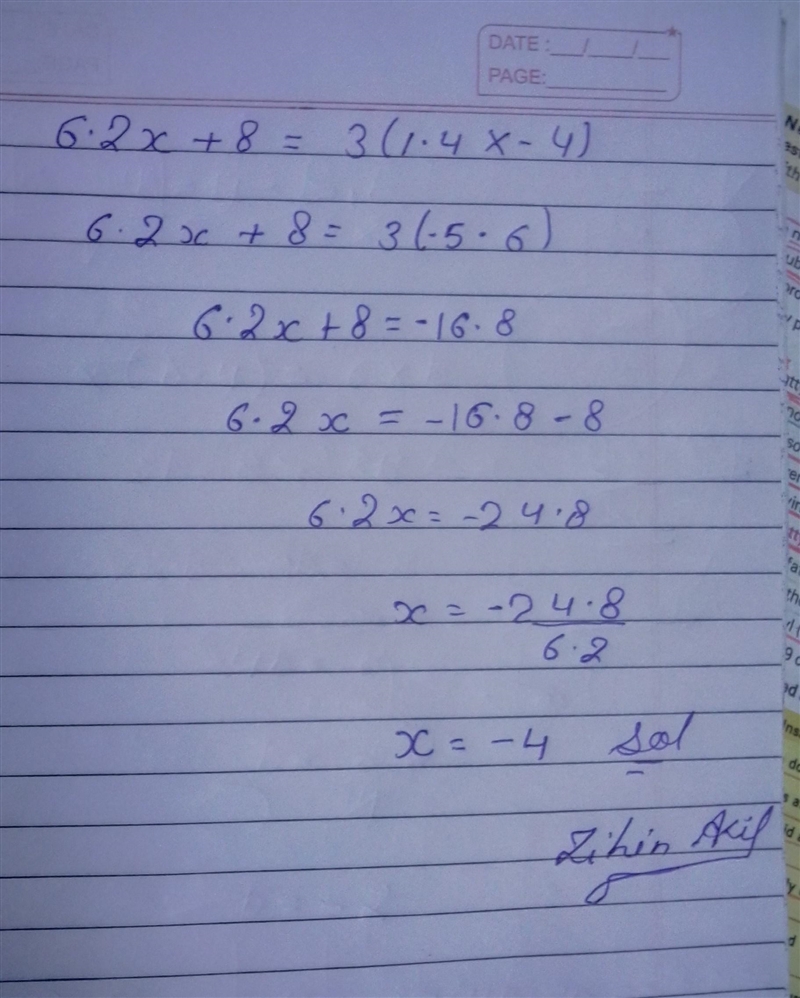 DATE :___/___/___
PAGE:___________
6·2x + 8 = 3(1·4 x - 4)
6·2x + 8 = 3(-5·6)
6·2x + 8 = -16·8
6·2x = -16·8 - 8
6·2x = -24·8
x = -24·8
6·2
x = -4 Sol
Zihin Akif